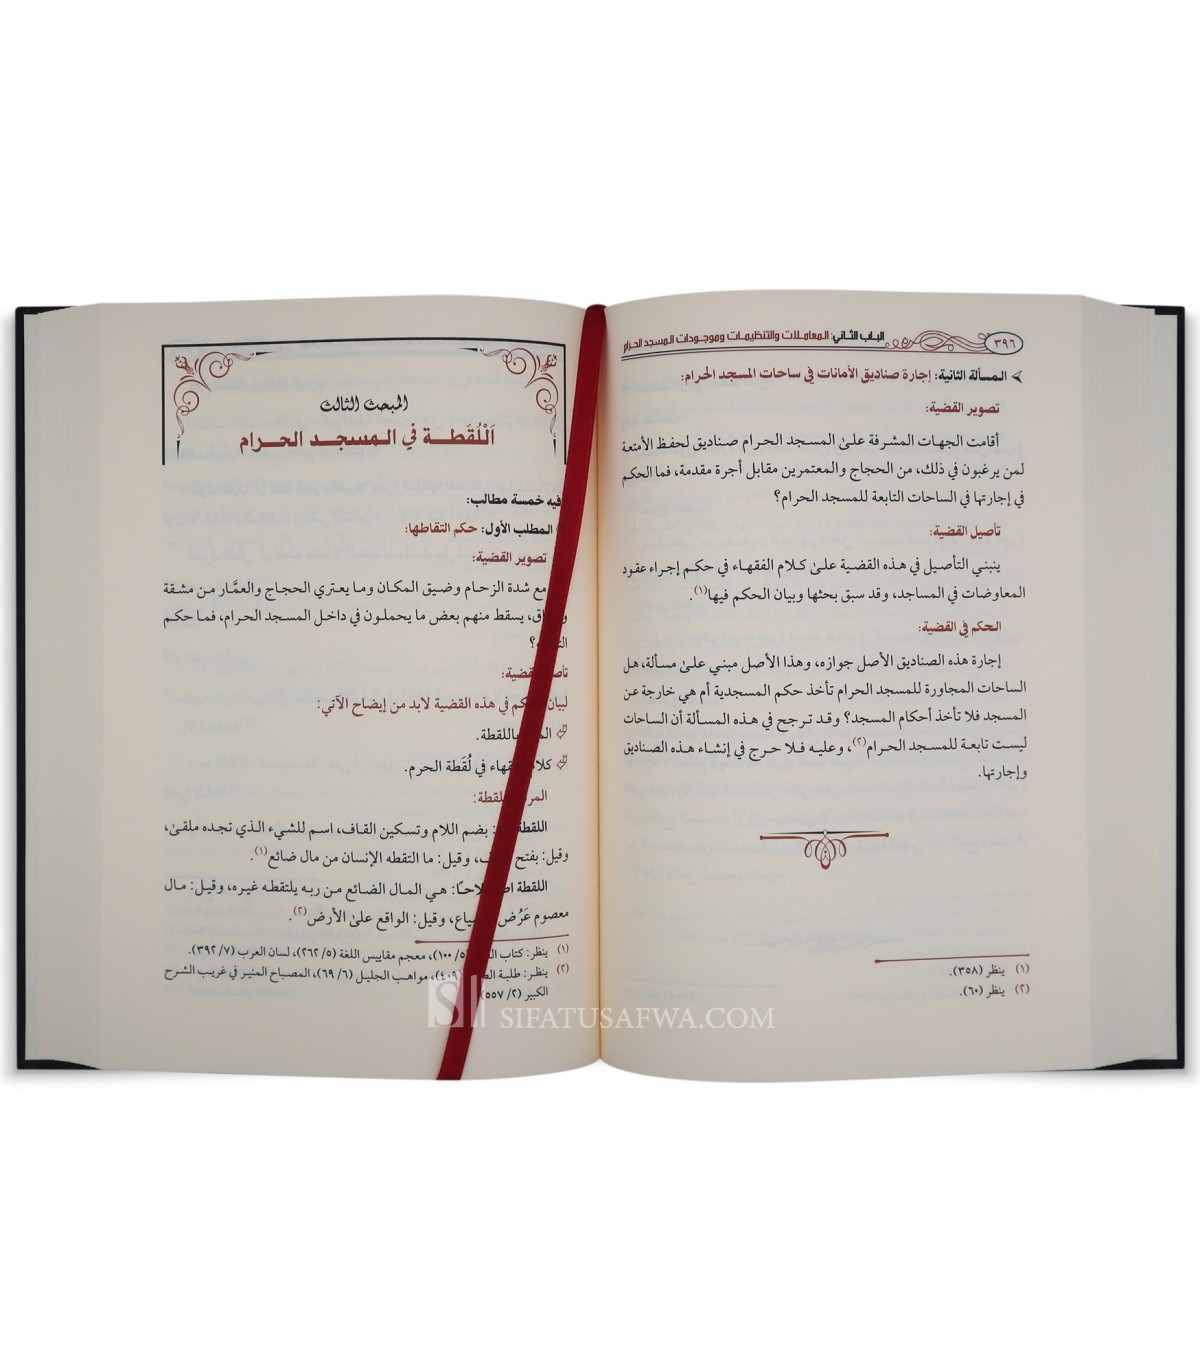 ٣٩٦
الباب الثاني: المعاملات والتنظيمات وموجودات المسجد الحرام
المسألة الثانية: إجارة صناديق الأمانات في ساحات المسجد الحرام:
تصوير القضية:
أقامت الجهات المشرفة على المسجد الحرام صناديق لحفظ الأمتعة
لمن يرغبون في ذلك، من الحجاج والمعتمرين مقابل أجرة مقدمة، فما الحكم
في إجارتها في الساحات التابعة للمسجد الحرام؟
تأصيل القضية:
ينبني التأصيل في هذه القضية على كلام الفقهاء في حكم إجراء عقود
المعاوضات في المساجد، وقد سبق بحثها وبيان الحكم فيها(١).
الحكم في القضية:
إجارة هذه الصناديق الأصل جوازه، وهذا الأصل مبني على مسألة، هل
الساحات المجاورة للمسجد الحرام تأخذ حكم المسجدية أم هي خارجة عن
المسجد فلا تأخذ أحكام المسجد؟ وقد ترجح في هذه المسألة أن الساحات
ليست تابعة للمسجد الحرام(٢)، وعليه فلا حرج في إنشاء هذه الصناديق
وإجارتها.
(١) ينظر (٣٥٨).
(٢) ينظر (٦٠).
المبحث الثالث
اَللُّقَطَة في المسجد الحرام
فيه خمسة مطالب:
المطلب الأول: حكم التقاطها:
تصوير القضية:
مع شدة الزحام وضيق المكان وما يعتري الحجاج والعمَّار من مشقة
يسقط منهم بعض ما يحملون في داخل المسجد الحرام، فما حكم
لابد من إيضاح الآتي: في هذه القضية
باللقطة.
في لُقَطة الحرم.
اللقطة: بضم اللام وتسكين القاف، اسم للشيء الذي تجده ملقى،
وقيل: بفتح القاف، وقيل: ما التقطه الإنسان من مال ضائع(١).
اللقطة اصطلاحًا: هي المال الضائع من ربه يلتقطه غيره، وقيل: مال
معصوم عَرُض للضياع، وقيل: الواقع على الأرض(٢).
(١) ينظر: كتاب (٥/ ١٠٠)، معجم مقاييس اللغة (٥/ ٢٦٢)، لسان العرب (٧/ ٣٩٢).
(٢) ينظر: طلبة (٤٠٩)، مواهب الجليل (٦/ ٦٩)، المصباح المنير في غريب الشرح
الكبير (٢/ ٥٥٧)
SIFATUSAFWA.COM